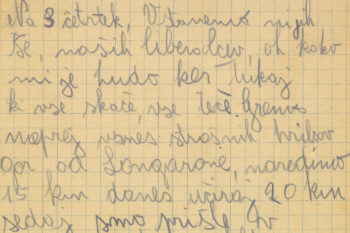 Na 3 četrtek, Vstanemo ni jih
še, naših liberalcev, oh kako
mi je hudo ker tukaj
ki vse skače, vse teče. Gremo
naprej vsmes strašnih hribov
gor od Longarone, naredimo
15 km danes včeraj 20 km
sedaj smo prišle v